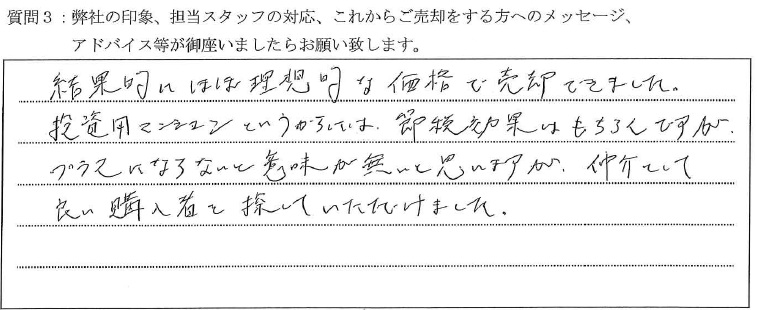 質問3：弊社の印象、担当スタッフの対応、これからご売却をする方へのメッセージ、
アドバイス等が御座いましたらお願い致します。
結果的にほぼ理想的な価格で売却できました。
投資用マンションというからには、節税効果はもちろんですが、
プラスにならないと意味が無いと思いますが、仲介として
良い購入者を探していただけました。